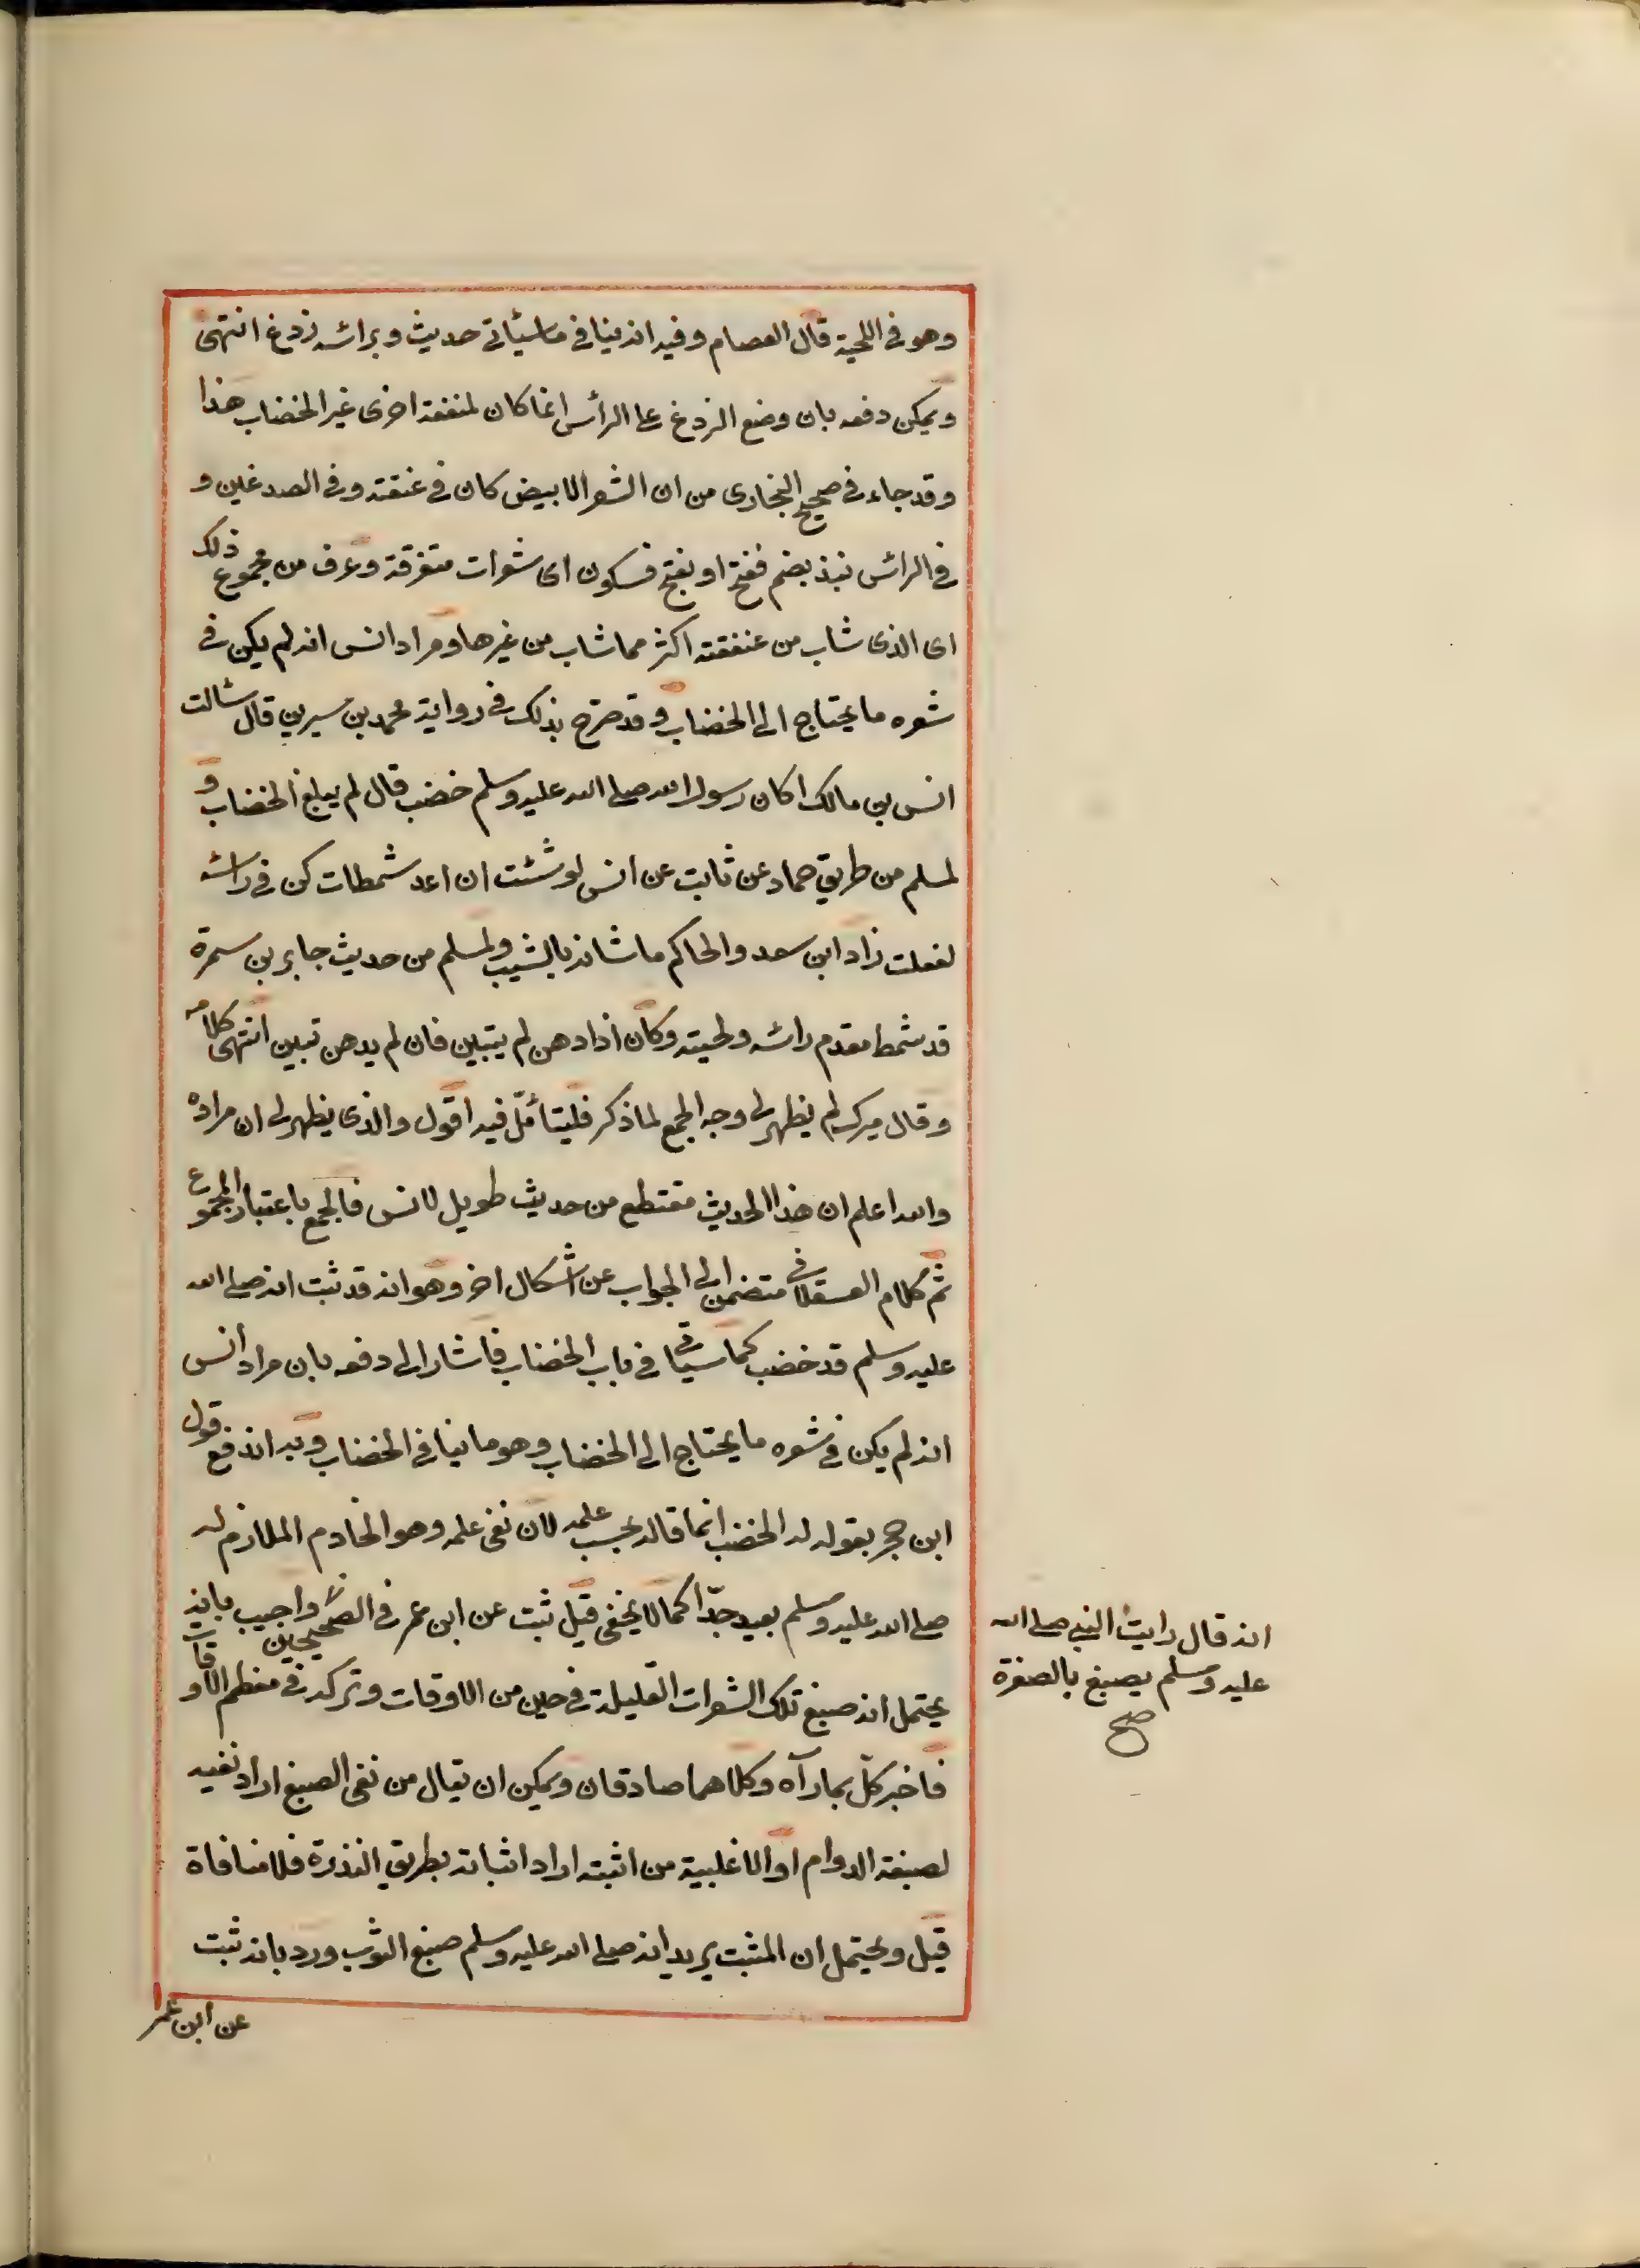 وهو في اللحية قال العصام وفيه انه ينافي ما سيأتي حديث وبرأسه ردغ انتهى
ويمكن دفعه بان وضع الردغ على الرأس انما كان لمنفعة اخرى غير الخضاب هذا
وقد جاء في صحيح البخاري من ان الشعر الابيض كان في عنفقته وفي الصدغين و
في الرأس نبذ بضم ففتح او بفتح فسكون اى شعرات متفرقة وعرف من مجموع ذلك
اى الذى شاب من عنفقته اكثر مما شاب من غيرها ومراد انس انه لم يكن في
شعره ما يحتاج الى الخضاب وقد صرح بذلك في رواية محمد بن سيرين قال سئالت
انس بن مالك اكان رسول الله صلى الله عليه وسلم خضب قال لم يبلغ الخضاب و
لمسلم من طريق حماد عن ثابت عن انس لو شئت ان اعد شمطات كن في رأسه
لفعلت زاد ابن سعد والحاكم ما شانه بالشيب ولمسلم من حديث جابر بن سمرة
قد شمط مقدم رأسه ولحيته وكان اذا دهن لم يتبين فان لم يدهن تبين انتهى كلامه
وقال ميرك لم يظهر لى وجه الجمع لما ذكر فليتأمل فيه اقول والذى يظهر لى ان مراده
والله اعلم ان هذا الحديث مقتطع من حديث طويل لانس فالجمع باعتبار المجموع
ثم كلام العسقلانى متضمن الى الجواب عن اشكال اخر وهو انه قد ثبت انه صلى الله
عليه وسلم قد خضب كما سيأتى في باب الخضاب فاشار الى دفعه بان مراد أنس
انه لم يكن في شعره ما يحتاج الى الخضاب وهو ما ينافي الخضاب وبه اندفع قول
ابن حجر بقوله له الخضب انما قاله بحسب علمه لان نفى علمه وهو الخادم الملازم له
صلى الله عليه وسلم بعيد جدّا كما لا يخفى قيل ثبت عن ابن عمر في الصحيحين واجيب بانه
يحتمل انه صبغ تلك الشعرات القليلة في حين من الاوقات وتركه في معظم الاوقات
فاخبر كلّ بما رآه وكلاهما صادقان ويمكن ان يقال من نفى الصبغ اراد نفيه
لصيغة الدوام او الاغلبية من اثبته اراد اثباته بطريق الندرة فلا منافاة
قيل ويحتمل ان المثبت يريد انه صلى الله عليه وسلم صبغ الثوب ورد بانه ثبت
عن ابن عمر
انه قال رايت النبى صلى الله
عليه وسلم يصبغ بالصفرة
صح